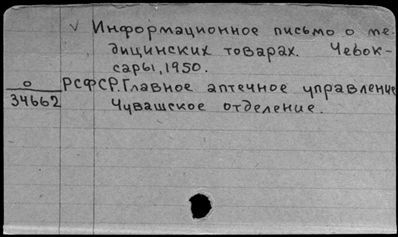 √ Информационное письмо о ме-
дицинских товарах. Чебок-
сары, 1950.
о РСФСР. Главное аптечное управление
34662 Чувашское отделение.